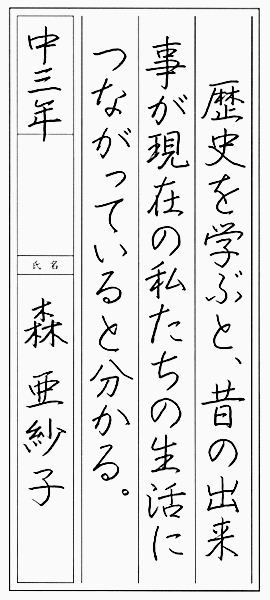 歴史を学ぶと、昔の出来
事が現在の私たちの生活に
つながっていると分かる。
中三年
氏名
森亜紗子